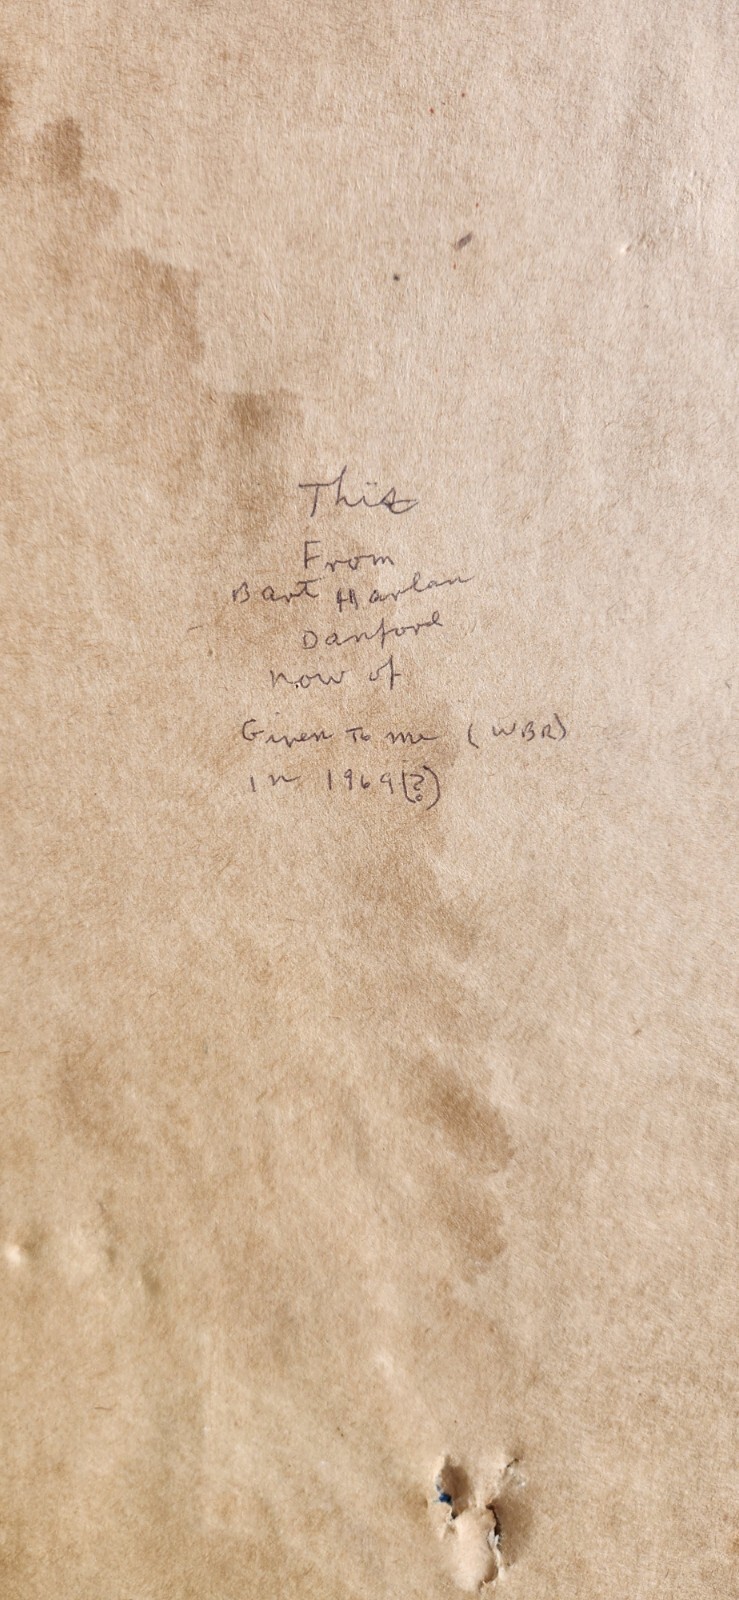 This
From
Bart Harlan
Danford
now of
Given To me (WBR)
in 1969(?)